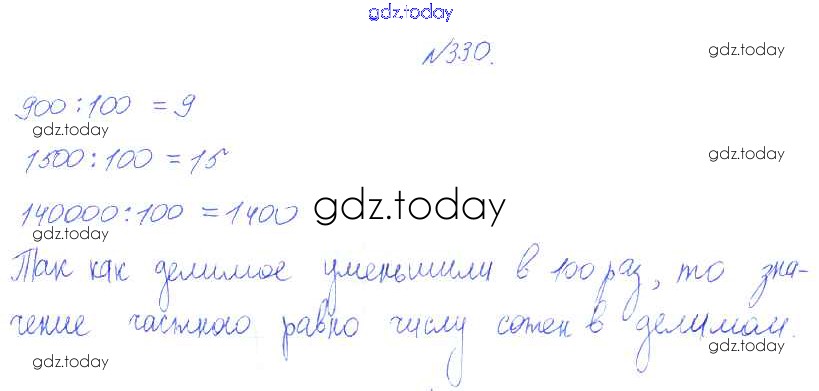 gdz.today
№330.
gdz.today
900:100 = 9
gdz.today
1500:100 = 15
gdz.today
140000:100 = 1400
gdz.today
gdz.today
Так как делимое уменьшили в 100 раз, то зна-
чение частного равно числу сотен в делимом.
gdz.today
gdz.today